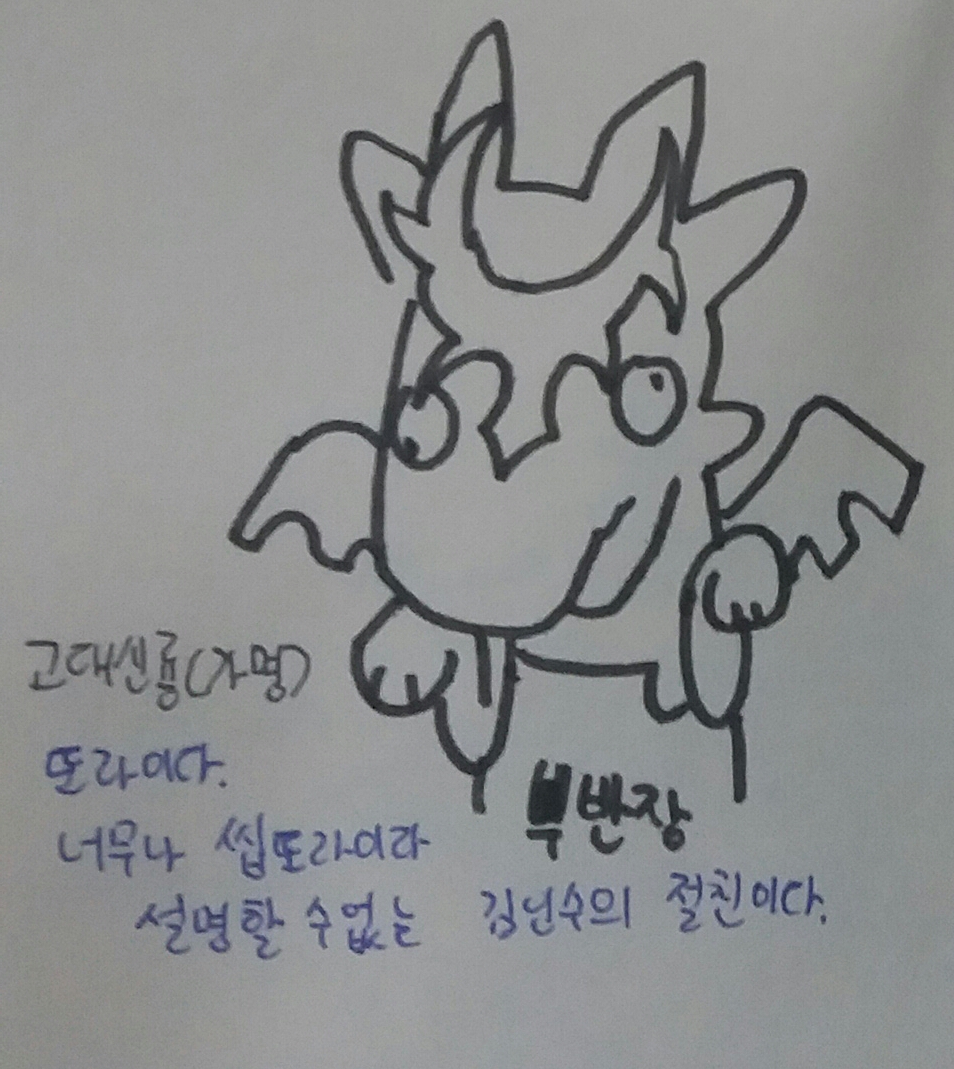 고대신룡(가명)
또라이다.
부반장
너무나 씹또라이라
설명할 수없는 김닌수의 절친이다.